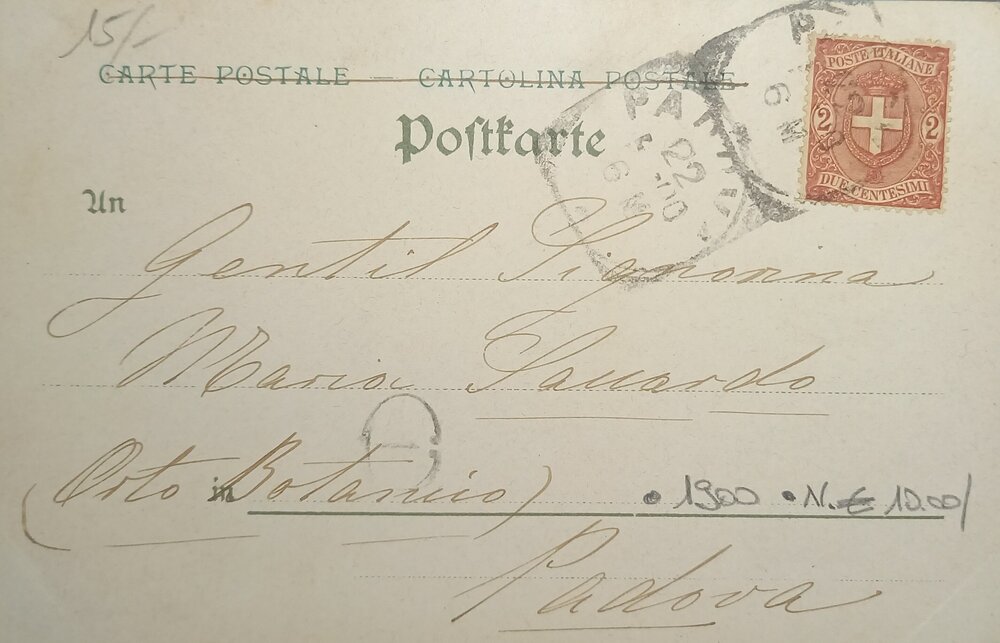 15/-
CARTE POSTALE — CARTOLINA POSTALE
Postkarte
POSTE ITALIANE
2 2
DUE CENTESIMI
22
6 M
6 M
An
Gentil Signorina
Maria Saccardo
(Orto Botanico)
in
• 1900 • N. € 10.00/
Padova